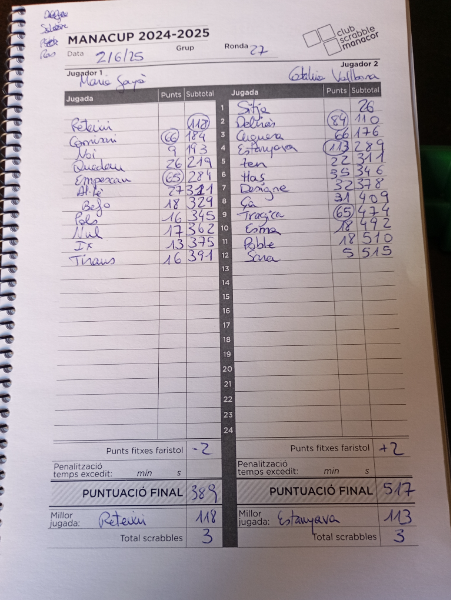 MANACUP 2024-2025
club
scrabble
manacor
Data 2/6/25 Grup Ronda 27
Jugador 1 Jugador 2
Maria Catalina Vallbona
Jugada Punts Subtotal Jugada Punts Subtotal
1 Sitja 26
Reteixi 118 2 84 110
66 184 3 Ceguera 66 176
Noi 9 193 4 Estanyava 113 289
Quedau 26 219 5 ten 22 311
Empescau 65 284 6 Has 35 346
27 311 7 Designe 32 378
18 329 8 Ça 31 409
Pols 16 345 9 Tragica 65 474
Nul 17 362 10 Esma 18 492
Ix 13 375 11 Poble 18 510
Tiraus 16 391 12 Sana 5 515
13
14
15
16
17
18
19
20
21
22
23
24
Punts fitxes faristol -2 Punts fitxes faristol +2
Penalització temps excedit: min s Penalització temps excedit: min s
PUNTUACIÓ FINAL 389 PUNTUACIÓ FINAL 517
Millor jugada: Reteixi 118 Millor jugada: Estanyava 113
Total scrabbles 3 Total scrabbles 3